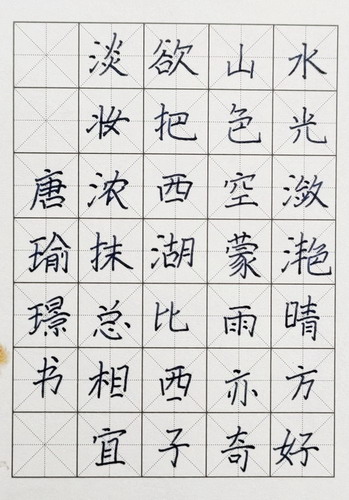 水光潋滟晴方好
山色空蒙雨亦奇
欲把西湖比西子
淡妆浓抹总相宜
唐瑜璟书